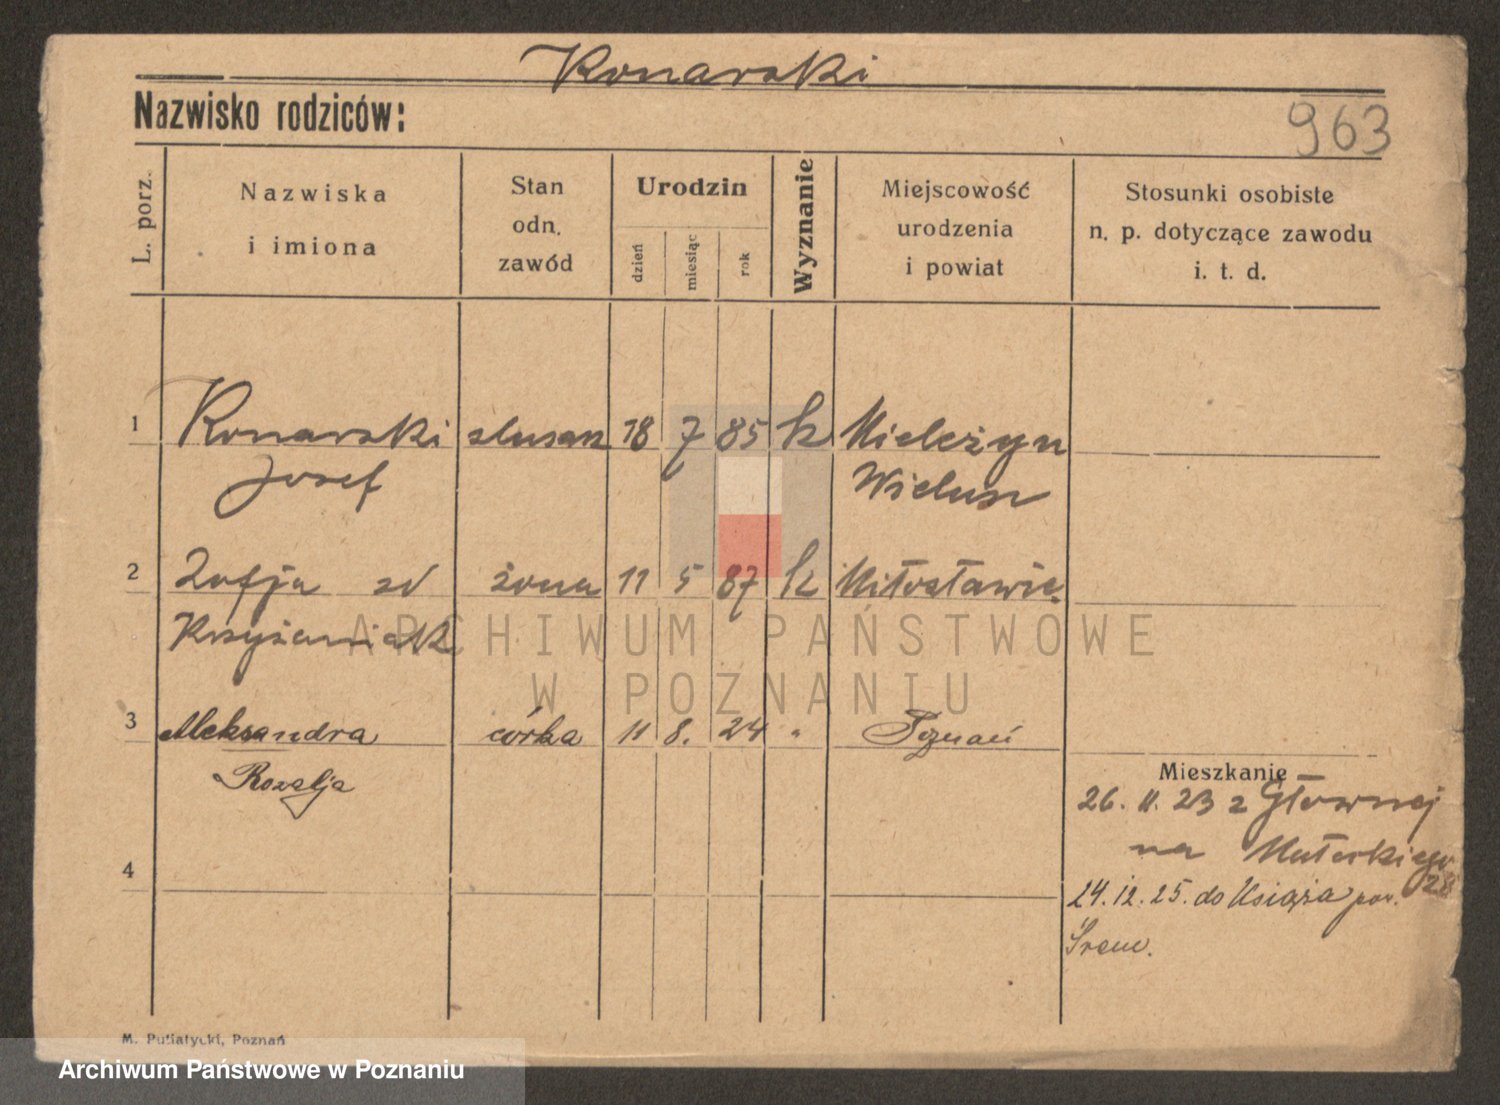 Konarski
Nazwisko rodziców:
963
L. porz.
Nazwiska
i imiona
Stan
odn.
zawód
Urodzin
dzień
miesiąc
rok
Wyznanie
Miejscowość
urodzenia
i powiat
Stosunki osobiste
n. p. dotyczące zawodu
i. t. d.
1 Konarski ślusarz 18 7 85 k Mielżyn
Josef
2 Zofja zd żona 11 5 87 k Miłosławie
3 Aleksandra córka 11 8. 24 " Poznań
Rozalja
Mieszkanie
26. 11. 23 z Głównej
na
28
4
24. 12. 25. do Książa pow.
Śrem.
ARCHIWUM PAŃSTWOWE
W POZNANIU
M. Putiatycki, Poznań
Archiwum Państwowe w Poznaniu